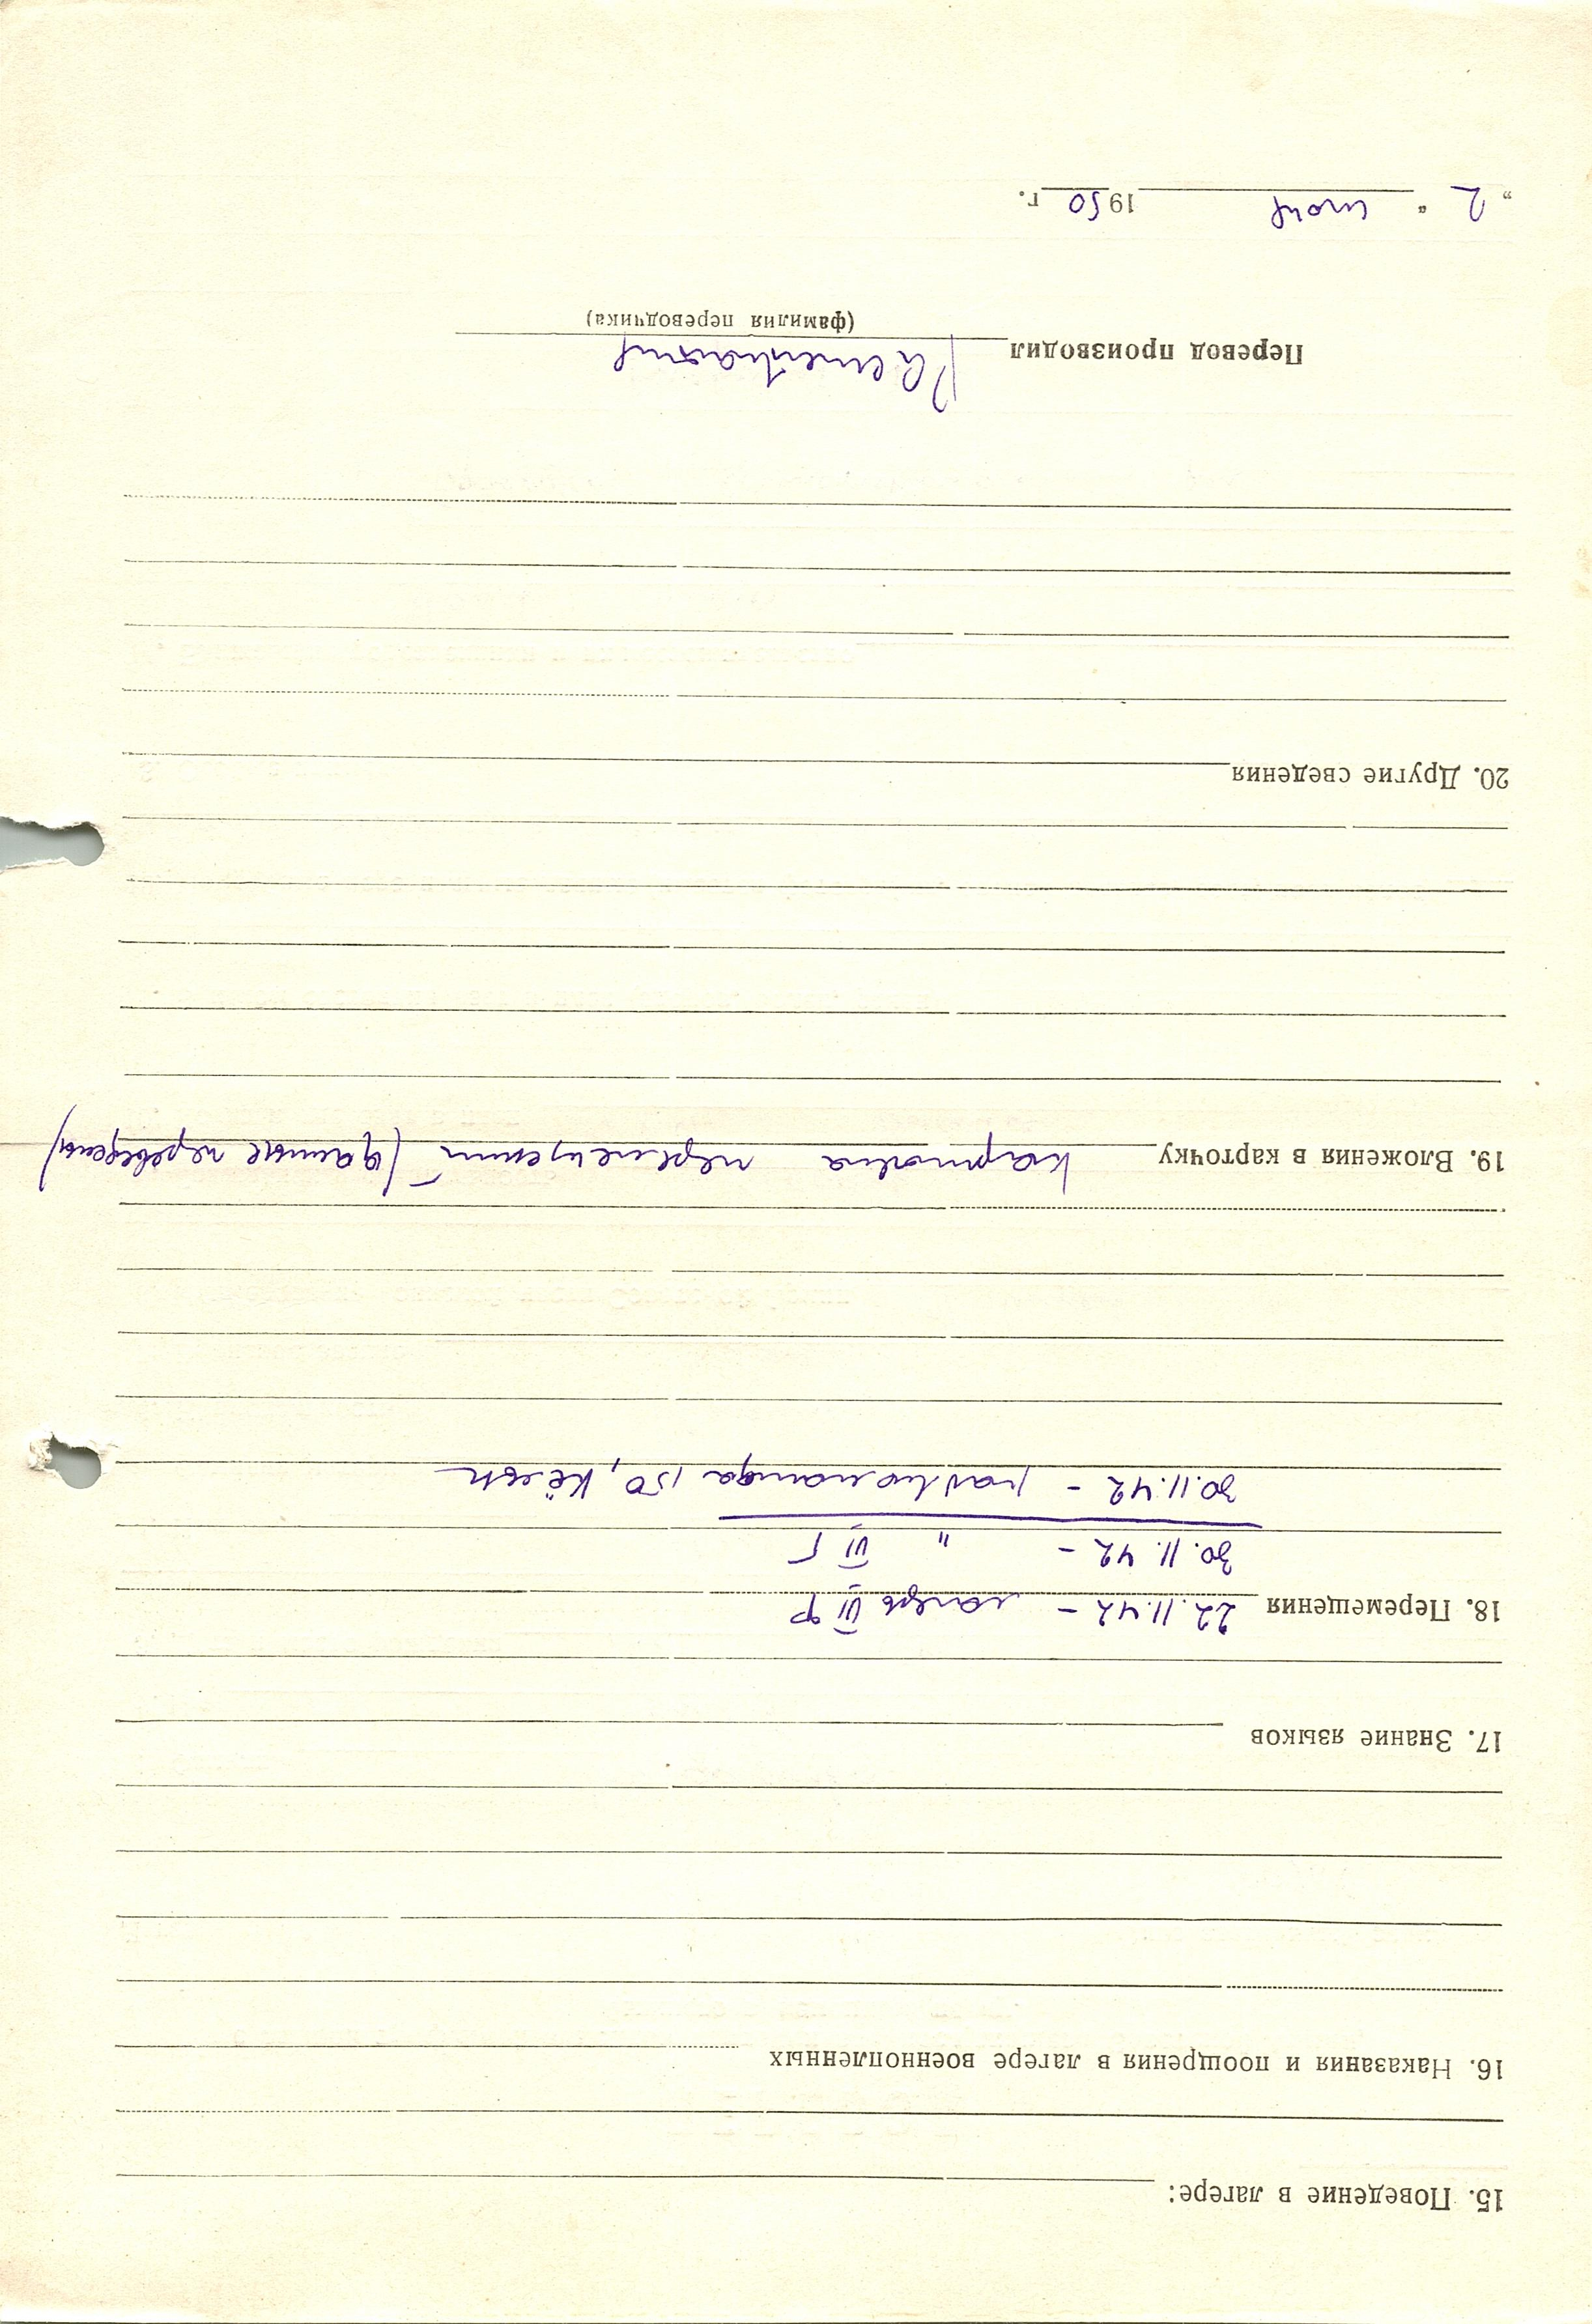 15. Поведение в лагере:
16. Наказания и поощрения в лагере военнопленных
17. Знание языков
18. Перемещения 22.11.42 – лагерь VI Ф
30.11.42 – " VI Г
30.11.42 – рабкоманда 150, Кёльн
19. Вложения в карточку карточка перемещений (данные переведены)
20. Другие сведения
Перевод производил
(фамилия переводчика)
„ 2 “ июня 1950 г.